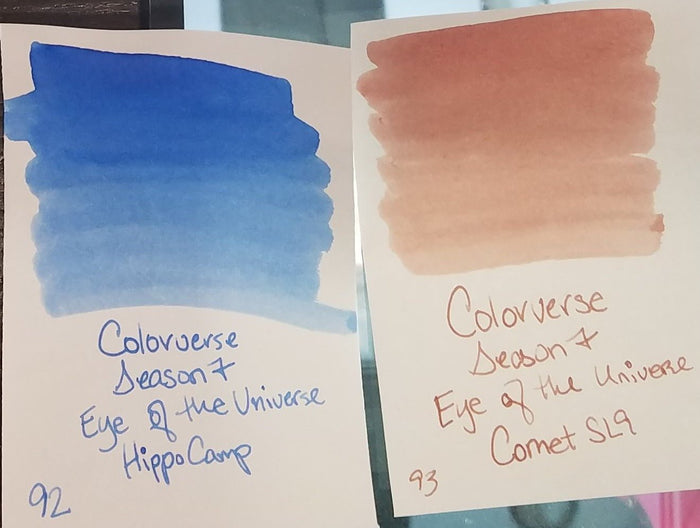 Colorverse
Season 7
Eye of the Universe
HippoCamp
92
Colorverse
Season 7
Eye of the Universe
Comet SL9
93